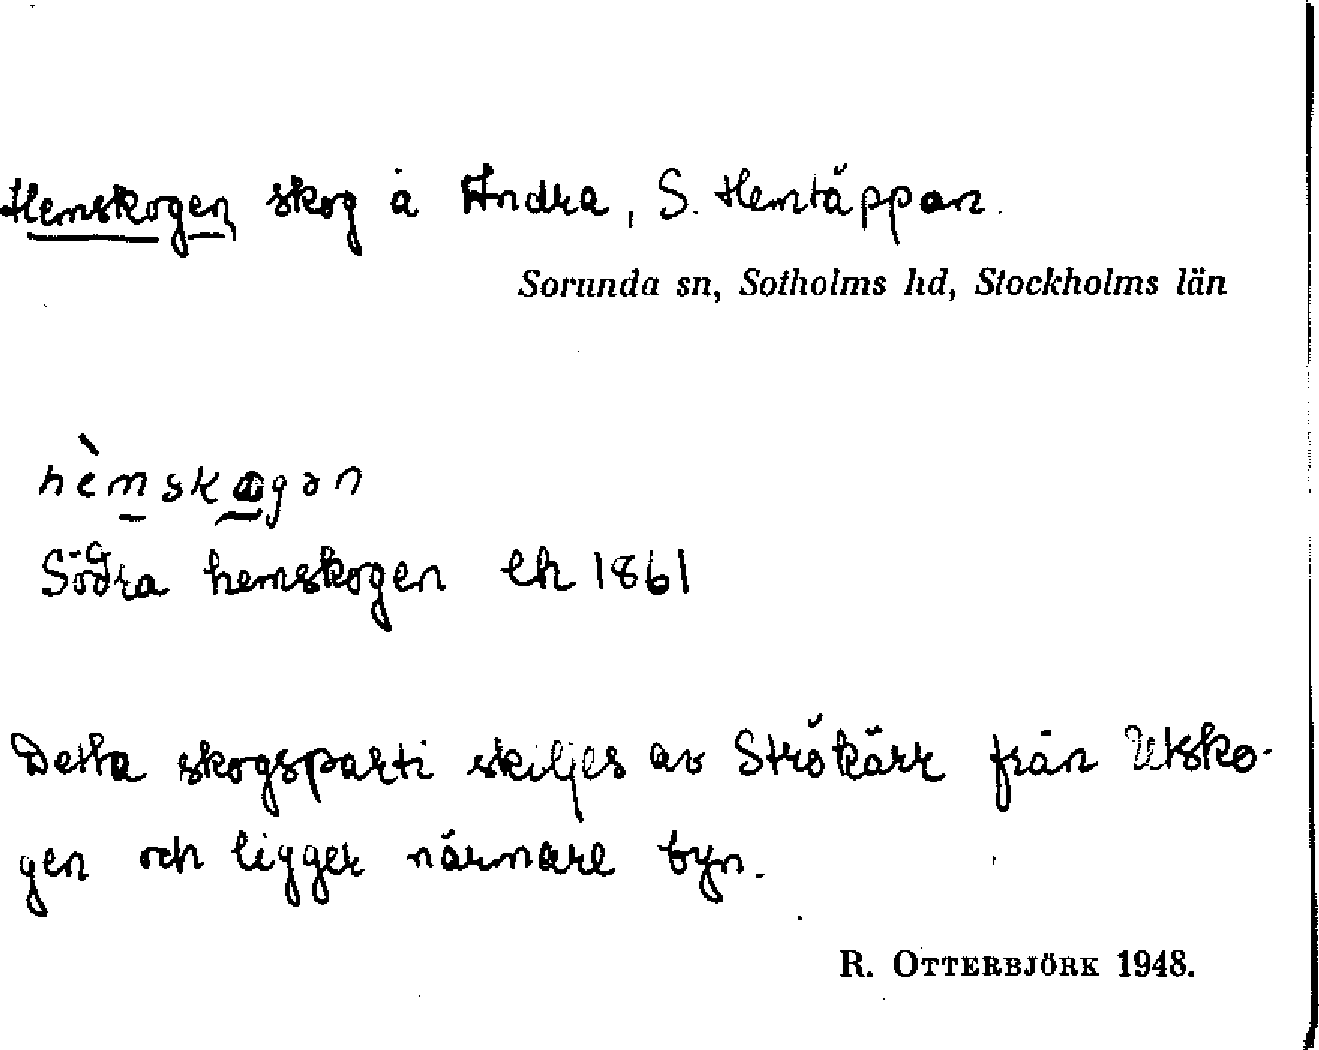 Hemskogen skog å Andra, S. Hemtäppan.
Sorunda sn, Sotholms hd, Stockholms län
hèmskogən
Södra hemskogen ek 1861
Detta skogsparti skiljes av Strökärr från Utsko-
gen och ligger närmare byn.
R. OTTERBJÖRK 1948.